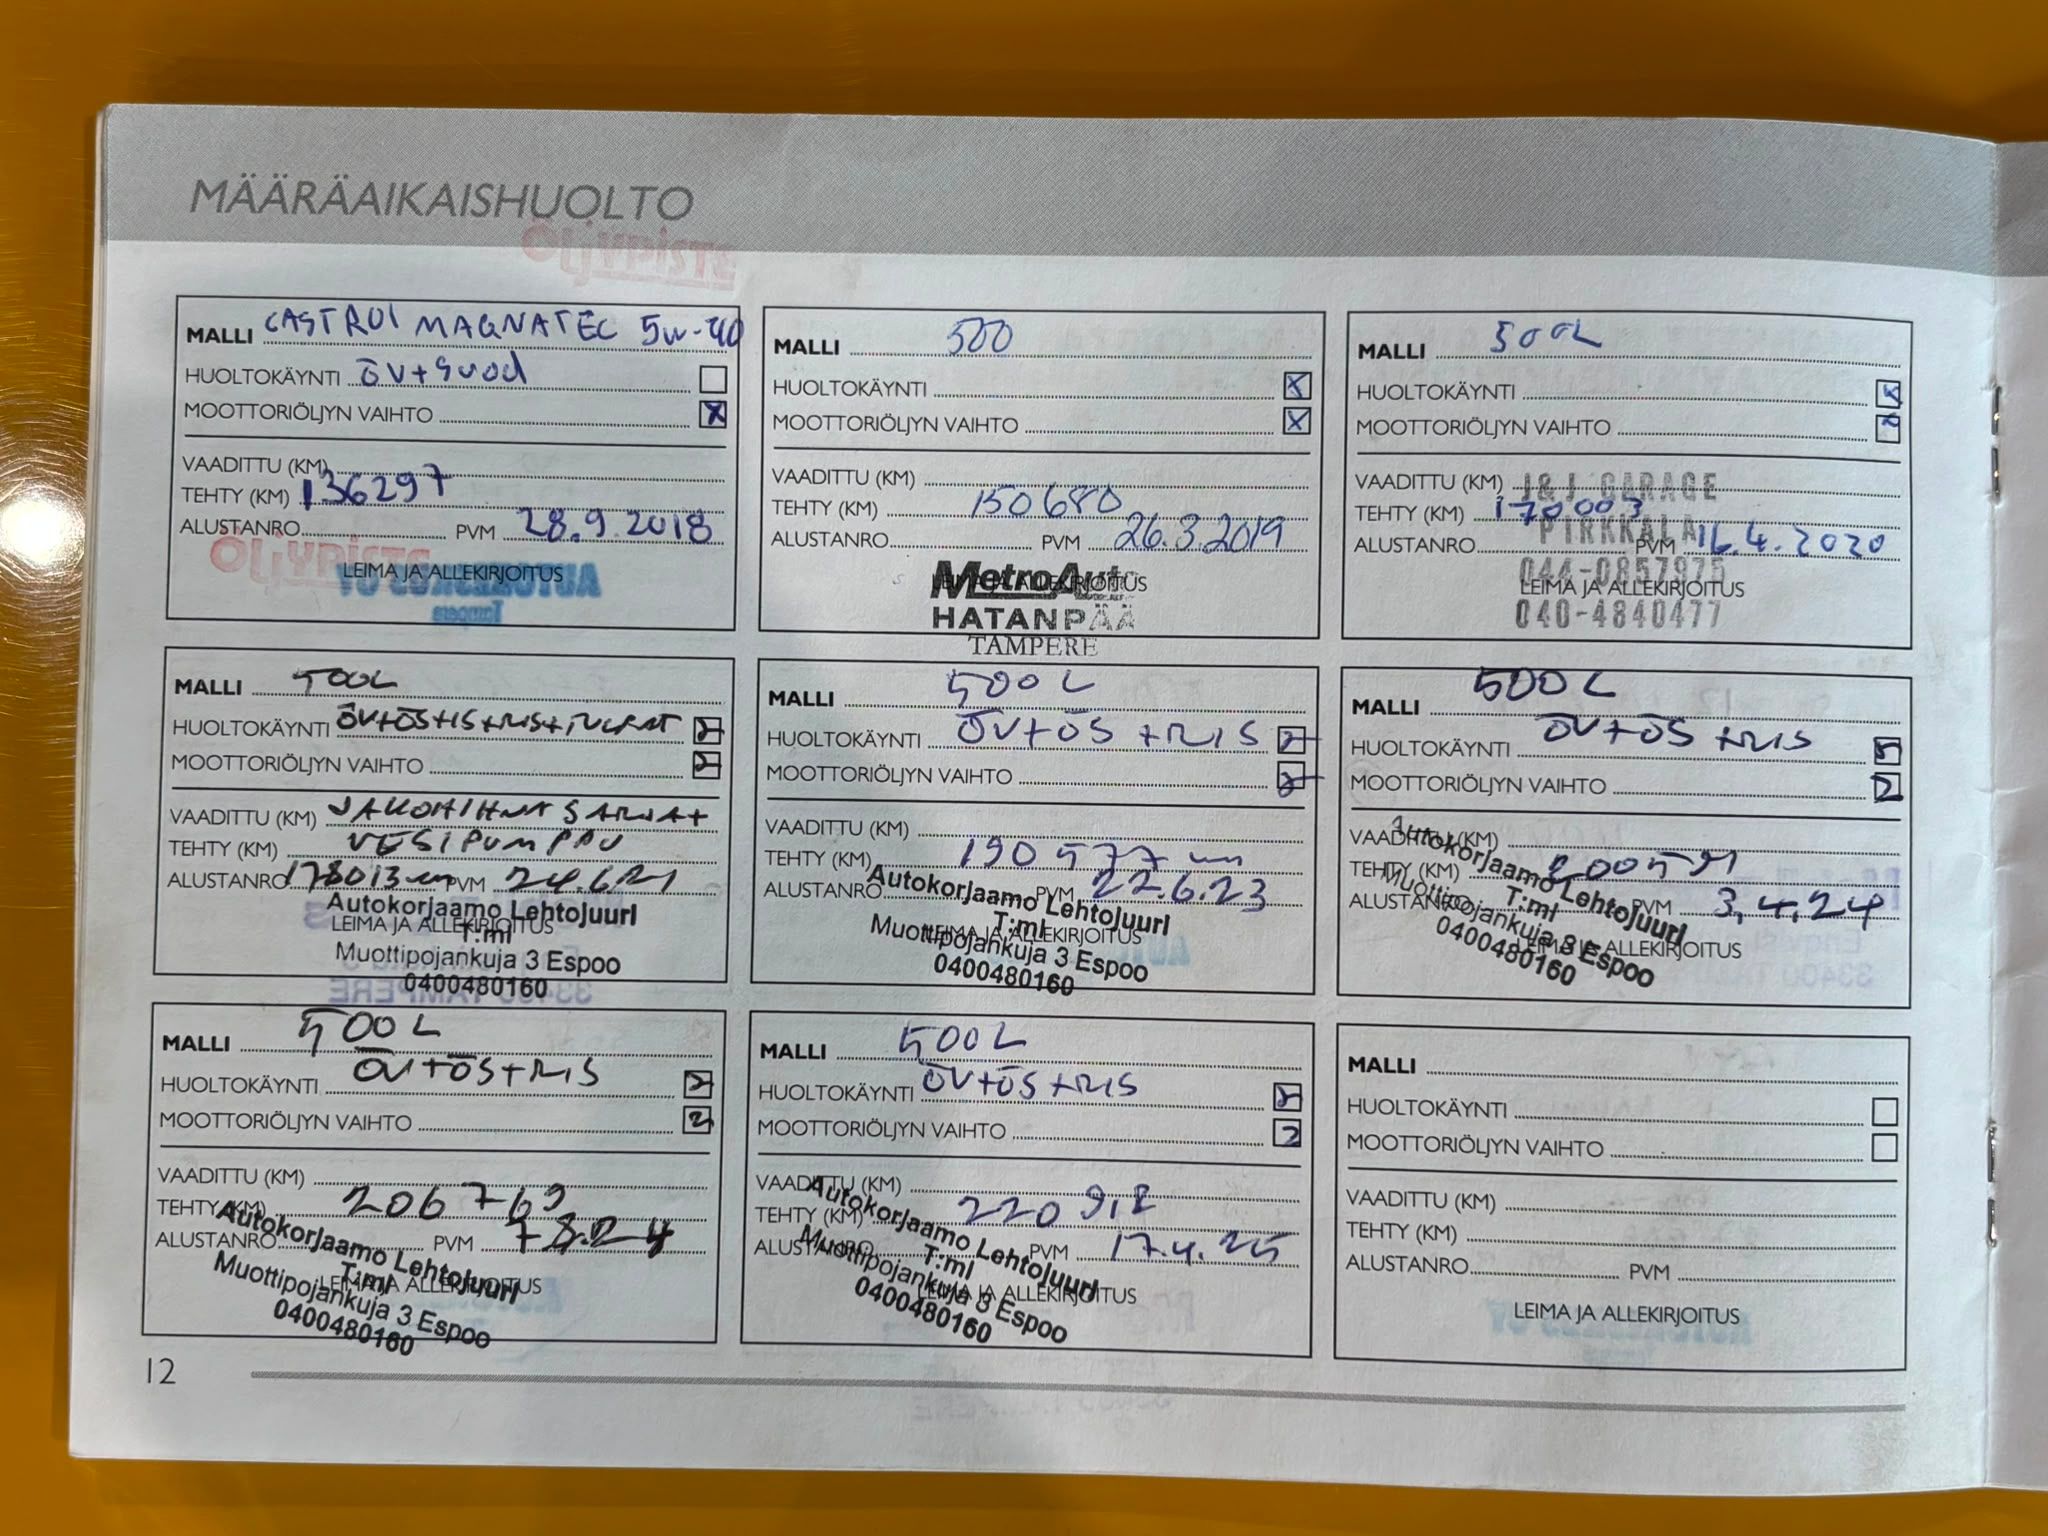 MÄÄRÄAIKAISHUOLTO
MALLI CASTROL MAGNATEC 5W-40
HUOLTOKÄYNTI ÖV+suod
MOOTTORIÖLJYN VAIHTO X
VAADITTU (KM)
TEHTY (KM) 136297
ALUSTANRO PVM 28.9.2018
LEIMA JA ALLEKIRJOITUS
MALLI 500
HUOLTOKÄYNTI X
MOOTTORIÖLJYN VAIHTO X
VAADITTU (KM)
TEHTY (KM) 150680
ALUSTANRO PVM 26.3.2019
LEIMA JA ALLEKIRJOITUS
MetroAuto
HATANPÄÄ
TAMPERE
MALLI 500L
HUOLTOKÄYNTI X
MOOTTORIÖLJYN VAIHTO X
VAADITTU (KM)
TEHTY (KM) 170003
ALUSTANRO PVM 16.4.2020
LEIMA JA ALLEKIRJOITUS
J&J GARAGE
PIRKKALA
044-0857975
040-4840477
MALLI 500L
HUOLTOKÄYNTI ÖV+ÖS+IS+RIS+
MOOTTORIÖLJYN VAIHTO
VAADITTU (KM) JAKOHIHNASARJA+
TEHTY (KM) VESIPUMPPU
ALUSTANRO 178013 PVM 24.6.21
LEIMA JA ALLEKIRJOITUS
Autokorjaamo Lehtojuuri
T:mi
Muottipojankuja 3 Espoo
0400480160
MALLI 500L
HUOLTOKÄYNTI ÖV+ÖS+RIS
MOOTTORIÖLJYN VAIHTO
VAADITTU (KM)
TEHTY (KM) 190577
ALUSTANRO PVM 22.6.23
LEIMA JA ALLEKIRJOITUS
Autokorjaamo Lehtojuuri
T:mi
Muottipojankuja 3 Espoo
0400480160
MALLI 500L
HUOLTOKÄYNTI ÖV+ÖS+RIS
MOOTTORIÖLJYN VAIHTO
VAADITTU (KM)
TEHTY (KM) 200591
ALUSTANRO PVM 3.4.24
LEIMA JA ALLEKIRJOITUS
Autokorjaamo Lehtojuuri
T:mi
Muottipojankuja 3 Espoo
0400480160
MALLI 500L
HUOLTOKÄYNTI ÖV+ÖS+RIS
MOOTTORIÖLJYN VAIHTO
VAADITTU (KM)
TEHTY (KM) 206769
ALUSTANRO PVM 7.8.24
LEIMA JA ALLEKIRJOITUS
Autokorjaamo Lehtojuuri
T:mi
Muottipojankuja 3 Espoo
0400480160
MALLI 500L
HUOLTOKÄYNTI ÖV+ÖS+RIS
MOOTTORIÖLJYN VAIHTO
VAADITTU (KM)
TEHTY (KM)
ALUSTANRO PVM 17.4.25
LEIMA JA ALLEKIRJOITUS
Autokorjaamo Lehtojuuri
T:mi
Muottipojankuja 3 Espoo
0400480160
MALLI
HUOLTOKÄYNTI
MOOTTORIÖLJYN VAIHTO
VAADITTU (KM)
TEHTY (KM)
ALUSTANRO PVM
LEIMA JA ALLEKIRJOITUS
12